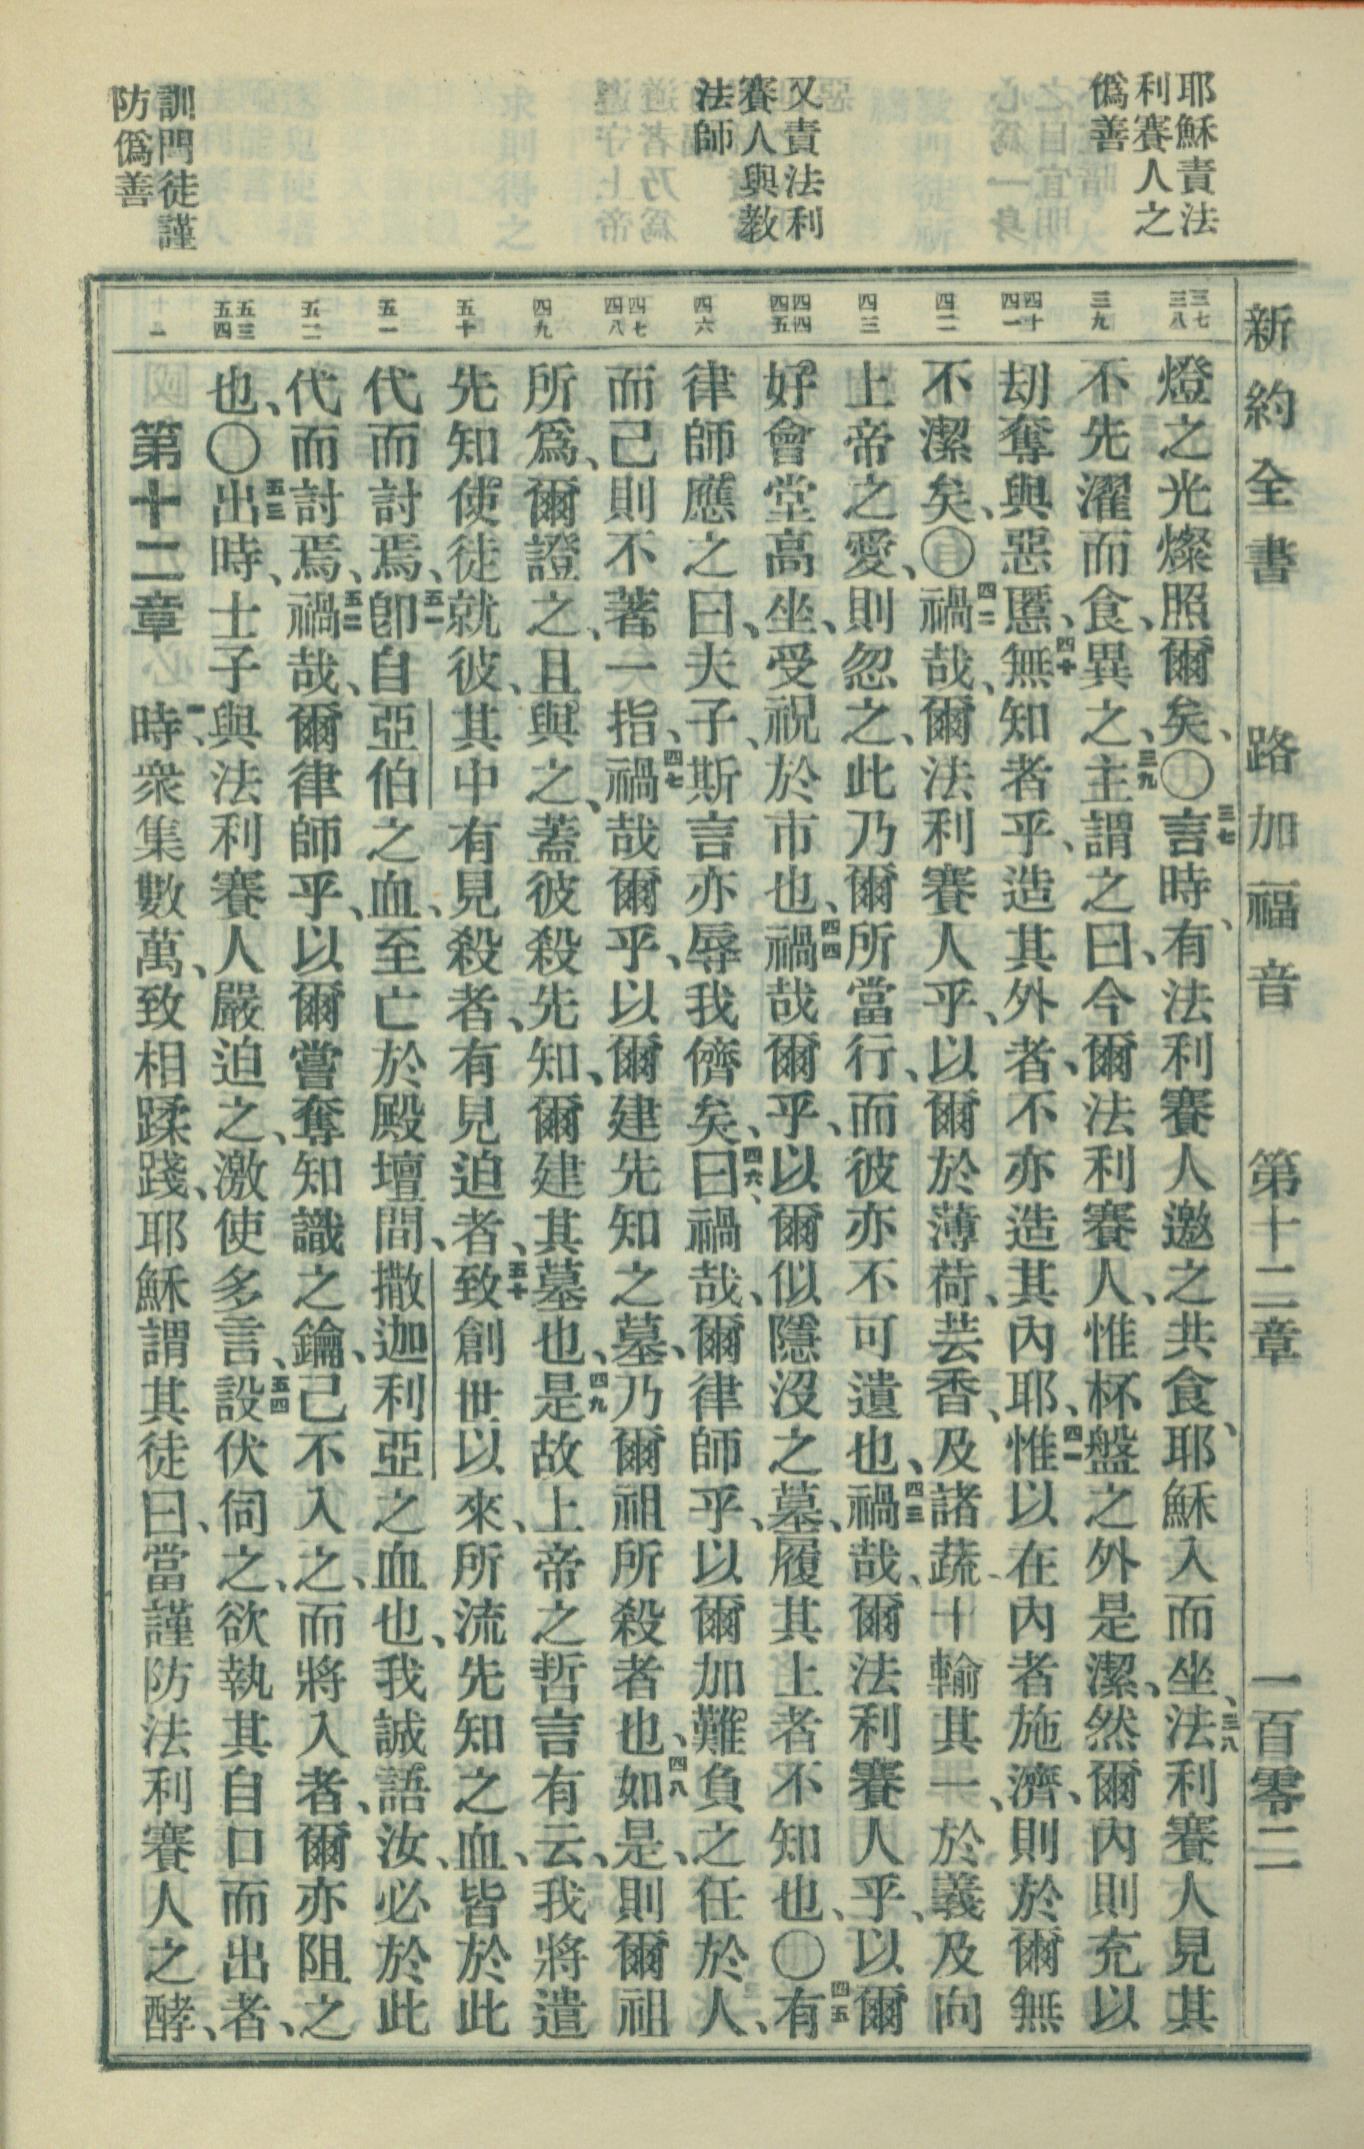 新約全書 路加福音 第十二章 一百零二
耶穌責法
利賽人之
僞善
又責法利
賽人與教
法師
訓門徒謹
防僞善
三七
三八
三九
四十
四一
四二
四三
四四
四五
四六
四七
四八
四九
五十
五一
五二
五三
五四
一
燈之光燦照爾矣、〇三七言時、有法利賽人邀之共食、耶穌入而坐、三八法利賽人見其
不先濯而食、異之、三九主謂之曰、今爾法利賽人、惟杯盤之外是潔、然爾內則充以
刧奪與惡慝、四十無知者乎、造其外者、不亦造其內耶、四一惟以在內者施濟、則於爾無
不潔矣、〇四二禍哉、爾法利賽人乎、以爾於薄荷、芸香、及諸蔬、十輸其一、於義及向
上帝之愛、則忽之、此乃爾所當行、而彼亦不可遺也、四三禍哉、爾法利賽人乎、以爾
好會堂高坐、受祝於市也、四四禍哉爾乎、以爾似隱沒之墓、履其上者不知也、〇四五有
律師應之曰、夫子、斯言亦辱我儕矣、四六曰、禍哉、爾律師乎、以爾加難負之任於人、
而己則不著一指、四七禍哉爾乎、以爾建先知之墓、乃爾祖所殺者也、四八如是、則爾祖
所爲、爾證之、且與之、蓋彼殺先知、爾建其墓也、四九是故上帝之哲言有云、我將遣
先知使徒就彼、其中有見殺者、有見迫者、五十致創世以來、所流先知之血、皆於此
代而討焉、五一卽自亞伯之血、至亡於殿壇間、撒迦利亞之血也、我誠語汝、必於此
代而討焉、五二禍哉、爾律師乎、以爾嘗奪知識之鑰、己不入之、而將入者、爾亦阻之
也、〇五三出時、士子與法利賽人嚴迫之、激使多言、五四設伏伺之、欲執其自口而出者、
第十二章 一時、衆集數萬、致相蹂踐、耶穌謂其徒曰、當謹防法利賽人之酵、